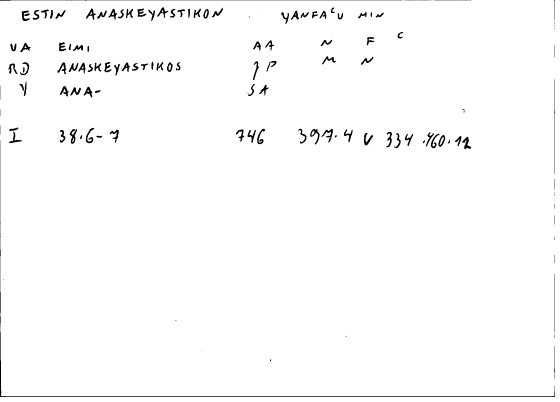 ESTIN ANASKEYASTIKON YANFAʿU MIN
VA EIMI AA N F C
RD ANASKEYASTIKOS P M N
V ANA- SA
I 38.6-7 746 397.4 V 334.460.12